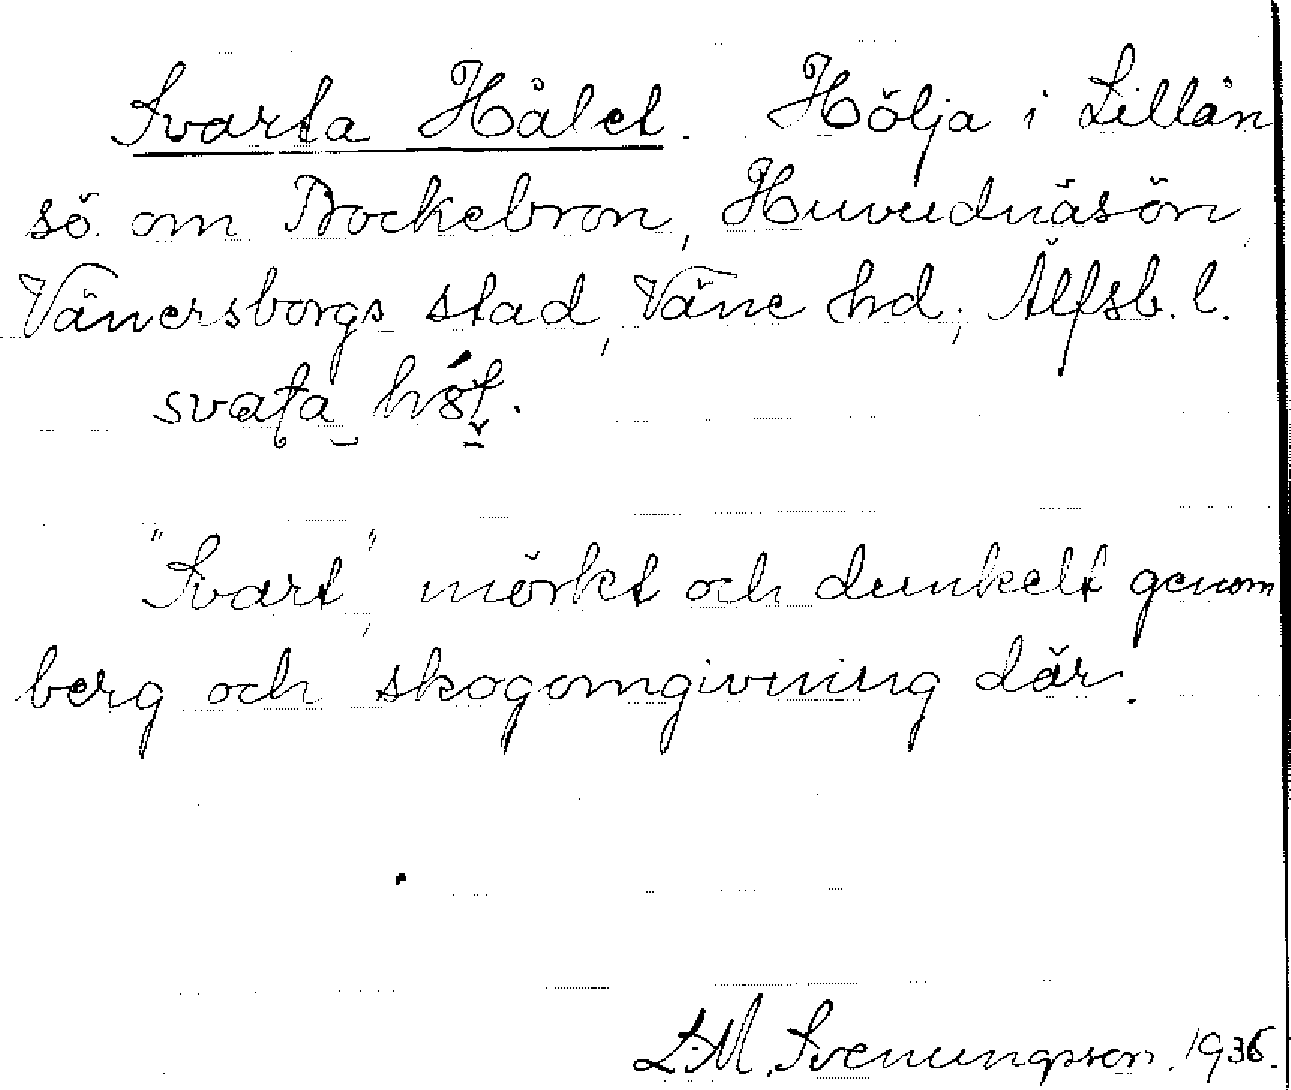 Svarta Hålet. Hölja i Lillån
sö. om Brockebron, Huvudnäsön,
Vänersborgs stad, Väne hd; Älfsb. l.
svata
"Svart", mörkt och dunkelt genom
berg och skogomgivning där.
L.M. Svenungsson. 1936.